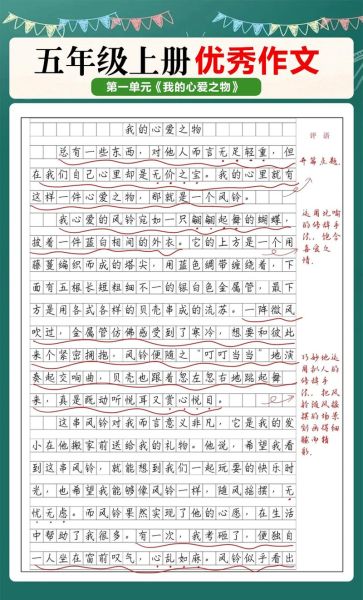 五年级上册优秀作文
第一单元《我的心爱之物》
我的心爱之物
评语
总有一些东西，对他人而言无足轻重，但
在我们自己心里却是无价之宝。我的心里就有
这样一件心爱之物，那就是一个风铃。
开篇点题。
我心爱的风铃宛如一只翩翩起舞的蝴蝶，
披着一件蓝白相间的外衣。它的上方是一个用
藤蔓编织而成的塔尖，用蓝色绸带缠绕着，下
面有五根长短粗细不一的银白色金属管，最下
方是用各式各样的贝壳串成的流苏。一阵微风
吹过，金属管仿佛感受到了寒冷，想要和彼此
来个紧密拥抱。风铃便随之“叮叮当当”地演
奏起交响曲，贝壳也跟着忽左忽右地跳起舞
来，真是既动听悦耳又赏心悦目。
运用比喻
的修辞手
法，饱含
喜爱之
情。
巧妙地运
用拟人的
修辞手
法，把风
铃随风摇
摆的场景
刻画得细
腻而精
彩。
这串风铃对我而言意义非凡，它是我的发
小在他搬家前送给我的礼物。他说，希望我看
到这串风铃，就能想到我们一起玩耍的快乐时
光，也希望我能够像风铃一样，随风摇摆，无
忧无虑。而风铃果然实现了他的心愿，在生活
中帮助了我很多。有一次，我考砸了，便独自
一人坐在窗前叹气，心乱如麻。风铃似乎看出